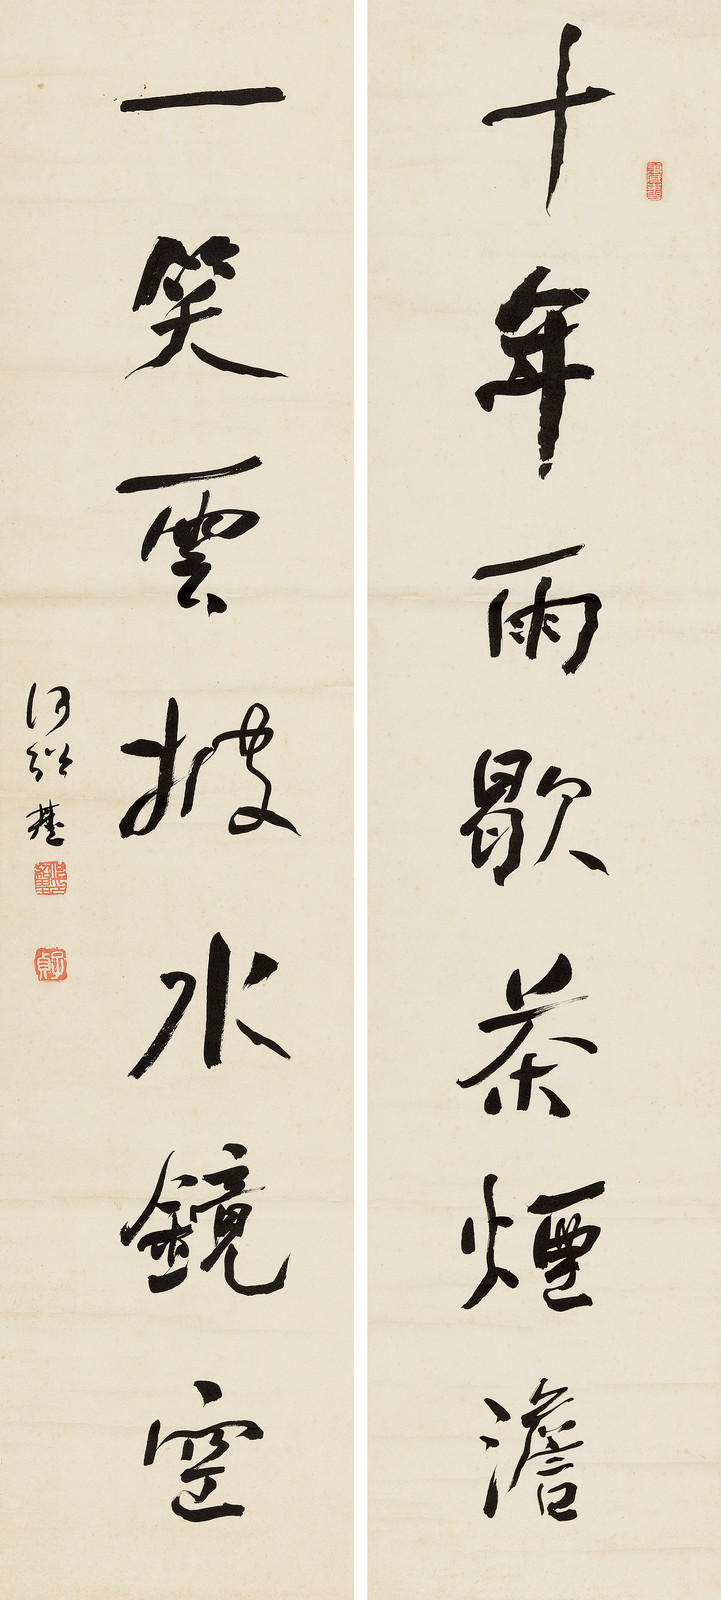 十年雨歇茶煙澹
一笑雲披水鏡空
何紹基
子貞